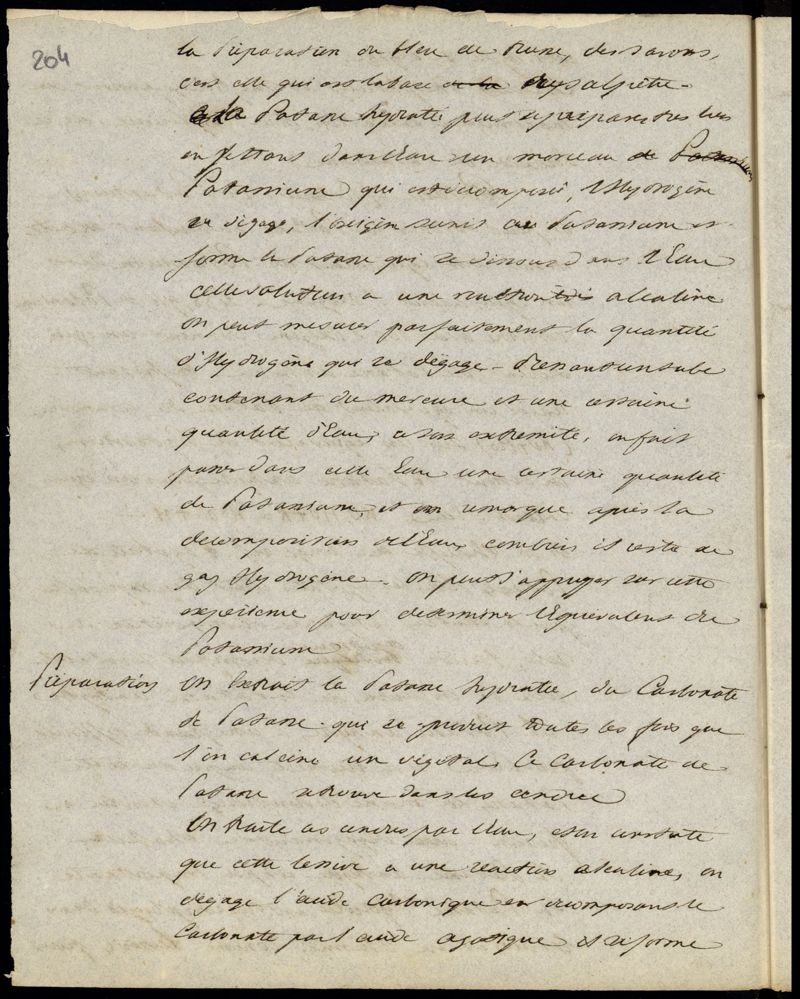 204
la Préparation du bleu de Prusse, des savons,
c'est elle qui est la base de la du salpêtre.
La Potasse hydratée peut se préparer très bien
en jettant dans l'Eau un morceau de Potassium
Potassium qui est décomposée, l'Hydrogène
se dégage, l'oxigène s'unit au Potassium et
forme la Potasse qui se dissout dans l'Eau
cette solution a une réaction très alcaline
on peut mesurer parfaitement la quantité
d'Hydrogène qui se dégage - Prenant un tube
contenant du mercure et une certaine
quantité d'Eau, à son extremité, on fait
passer dans cette Eau une certaine quantité
de Potassium, et on remarque après la
décomposition de l'Eau, combien il reste de
gaz Hydrogène. On peut s'appuyer sur cette
expérience pour determiner l'équivalent du
Potassium
Préparation On Extrait la Potasse hydratée, du Carbonate
de Potasse qui se produit toutes les fois que
l'on calcine un végétal, Ce Carbonate de
Potasse se trouve dans les cendres
On traite ces cendres par l'Eau, et on constate
que cette lessive a une réaction alcaline, on
dégage l'acide Carbonique en décomposant le
Carbonate par l'acide azotique et il se forme